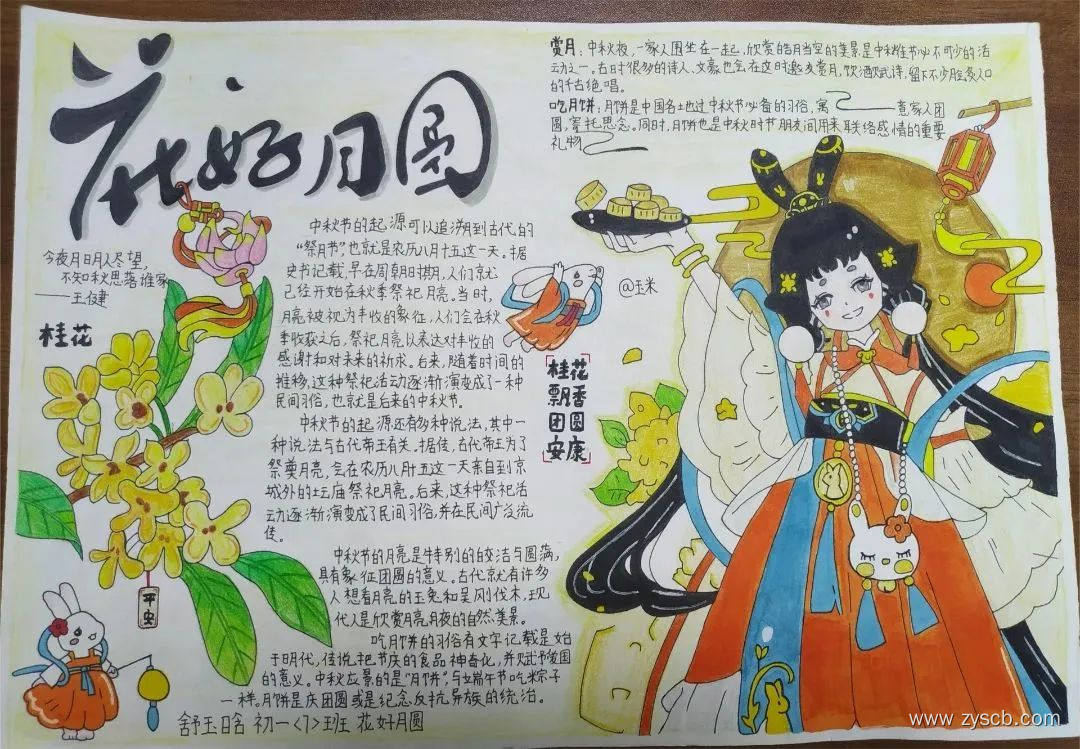 花好月圆
赏月：中秋夜，一家人围坐在一起，欣赏皓月当空的美景是中秋佳节必不可少的活
动之一。古时很多的诗人、文豪也会在这时邀友赏月，饮酒赋诗，留下不少脍炙人口
的千古绝唱。
吃月饼：月饼是中国各地过中秋节必备的习俗，寓意家人团
圆，寄托思念。同时，月饼也是中秋时节朋友间用来联络感情的重要
礼物
今夜月明人尽望，
不知秋思落谁家
——王建
桂花
中秋节的起源可以追溯到古代的
“祭月节”，也就是农历八月十五这一天。据
史书记载，早在周朝时期，人们就
已经开始在秋季祭祀月亮。当时，
月亮被视为丰收的象征，人们会在秋
季收获之后，祭祀月亮以表达对丰收的
感谢和对未来的祈求。后来，随着时间的
推移，这种祭祀活动逐渐演变成了一种
民间习俗，也就是后来的中秋节。
中秋节的起源还有多种说法，其中一
种说法与古代帝王有关。据传，古代帝王为了
祭奠月亮，会在农历八月十五这一天亲自到京
城外的土庙祭祀月亮。后来，这种祭祀活
动逐渐演变成了民间习俗，并在民间广泛流
传。
中秋节的月亮是特别的皎洁与圆满，
具有象征团圆的意义。古代就有许多
人想着月亮的玉兔和吴刚伐木，现
代人是欣赏月亮，月夜的自然美景。
吃月饼的习俗有文字记载是始
于明代，传说把节庆的食品神奇化，并赋予爱国
的意义。中秋应景的是“月饼”，与端午节吃粽子
一样。月饼是庆团圆或是纪念反抗异族的统治。
@玉米
桂花
飘香
团圆
安康
平安
舒玉晗 初一<1>班 花好月圆
www.zyscb.com